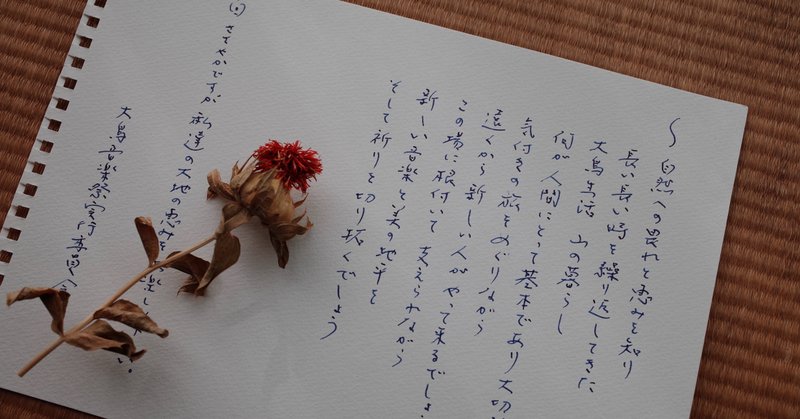 〜 自然への畏れと恵みを知り
長い長い時を繰り返してきた
大鳥生活 山の暮らし
何が人間にとって基本であり大切
気付きの旅をめぐりながら
遠くから新しい人がやって来るでしょ
この場に根付いて 支えられながら
新しい音楽と美の地平を
そして祈りを切り拓くでしょう
ささやかですが 私達の大地の恵みを 楽し
大鳥音楽祭実行委員会